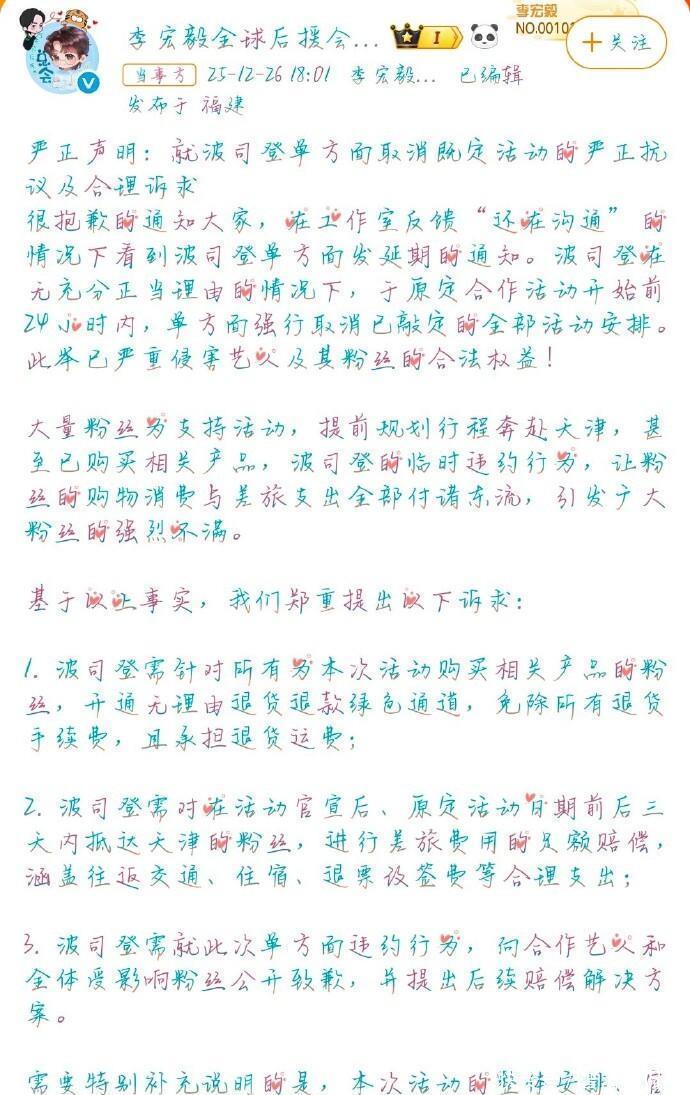 李宏毅全球后援会...
I
李宏毅
NO.00101
+关注
当事方 25-12-26 18:01 李宏毅... 已编辑
发布于 福建
严正声明：就波司登单方面取消既定活动的严正抗
议及合理诉求
很抱歉的通知大家，在工作室反馈“还在沟通”的
情况下看到波司登单方面发延期的通知。波司登在
无充分正当理由的情况下，于原定合作活动开始前
24小时内，单方面强行取消已敲定的全部活动安排。
此举已严重侵害艺人及其粉丝的合法权益！
大量粉丝为支持活动，提前规划行程奔赴天津，甚
至已购买相关产品，波司登的临时违约行为，让粉
丝的购物消费与差旅支出全部付诸东流，引发广大
粉丝的强烈不满。
基于以上事实，我们郑重提出以下诉求：
1. 波司登需针对所有为本次活动购买相关产品的粉
丝，开通无理由退货退款绿色通道，免除所有退货
手续费，且承担退货运费；
2. 波司登需对在活动官宣后、原定活动日期前后三
天内抵达天津的粉丝，进行差旅费用的足额赔偿，
涵盖往返交通、住宿、退票改签费等合理支出；
3. 波司登需就此次单方面违约行为，向合作艺人和
全体受影响粉丝公开致歉，并提出后续赔偿解决方
案。
需要特别补充说明的是，本次活动的整体安排、官